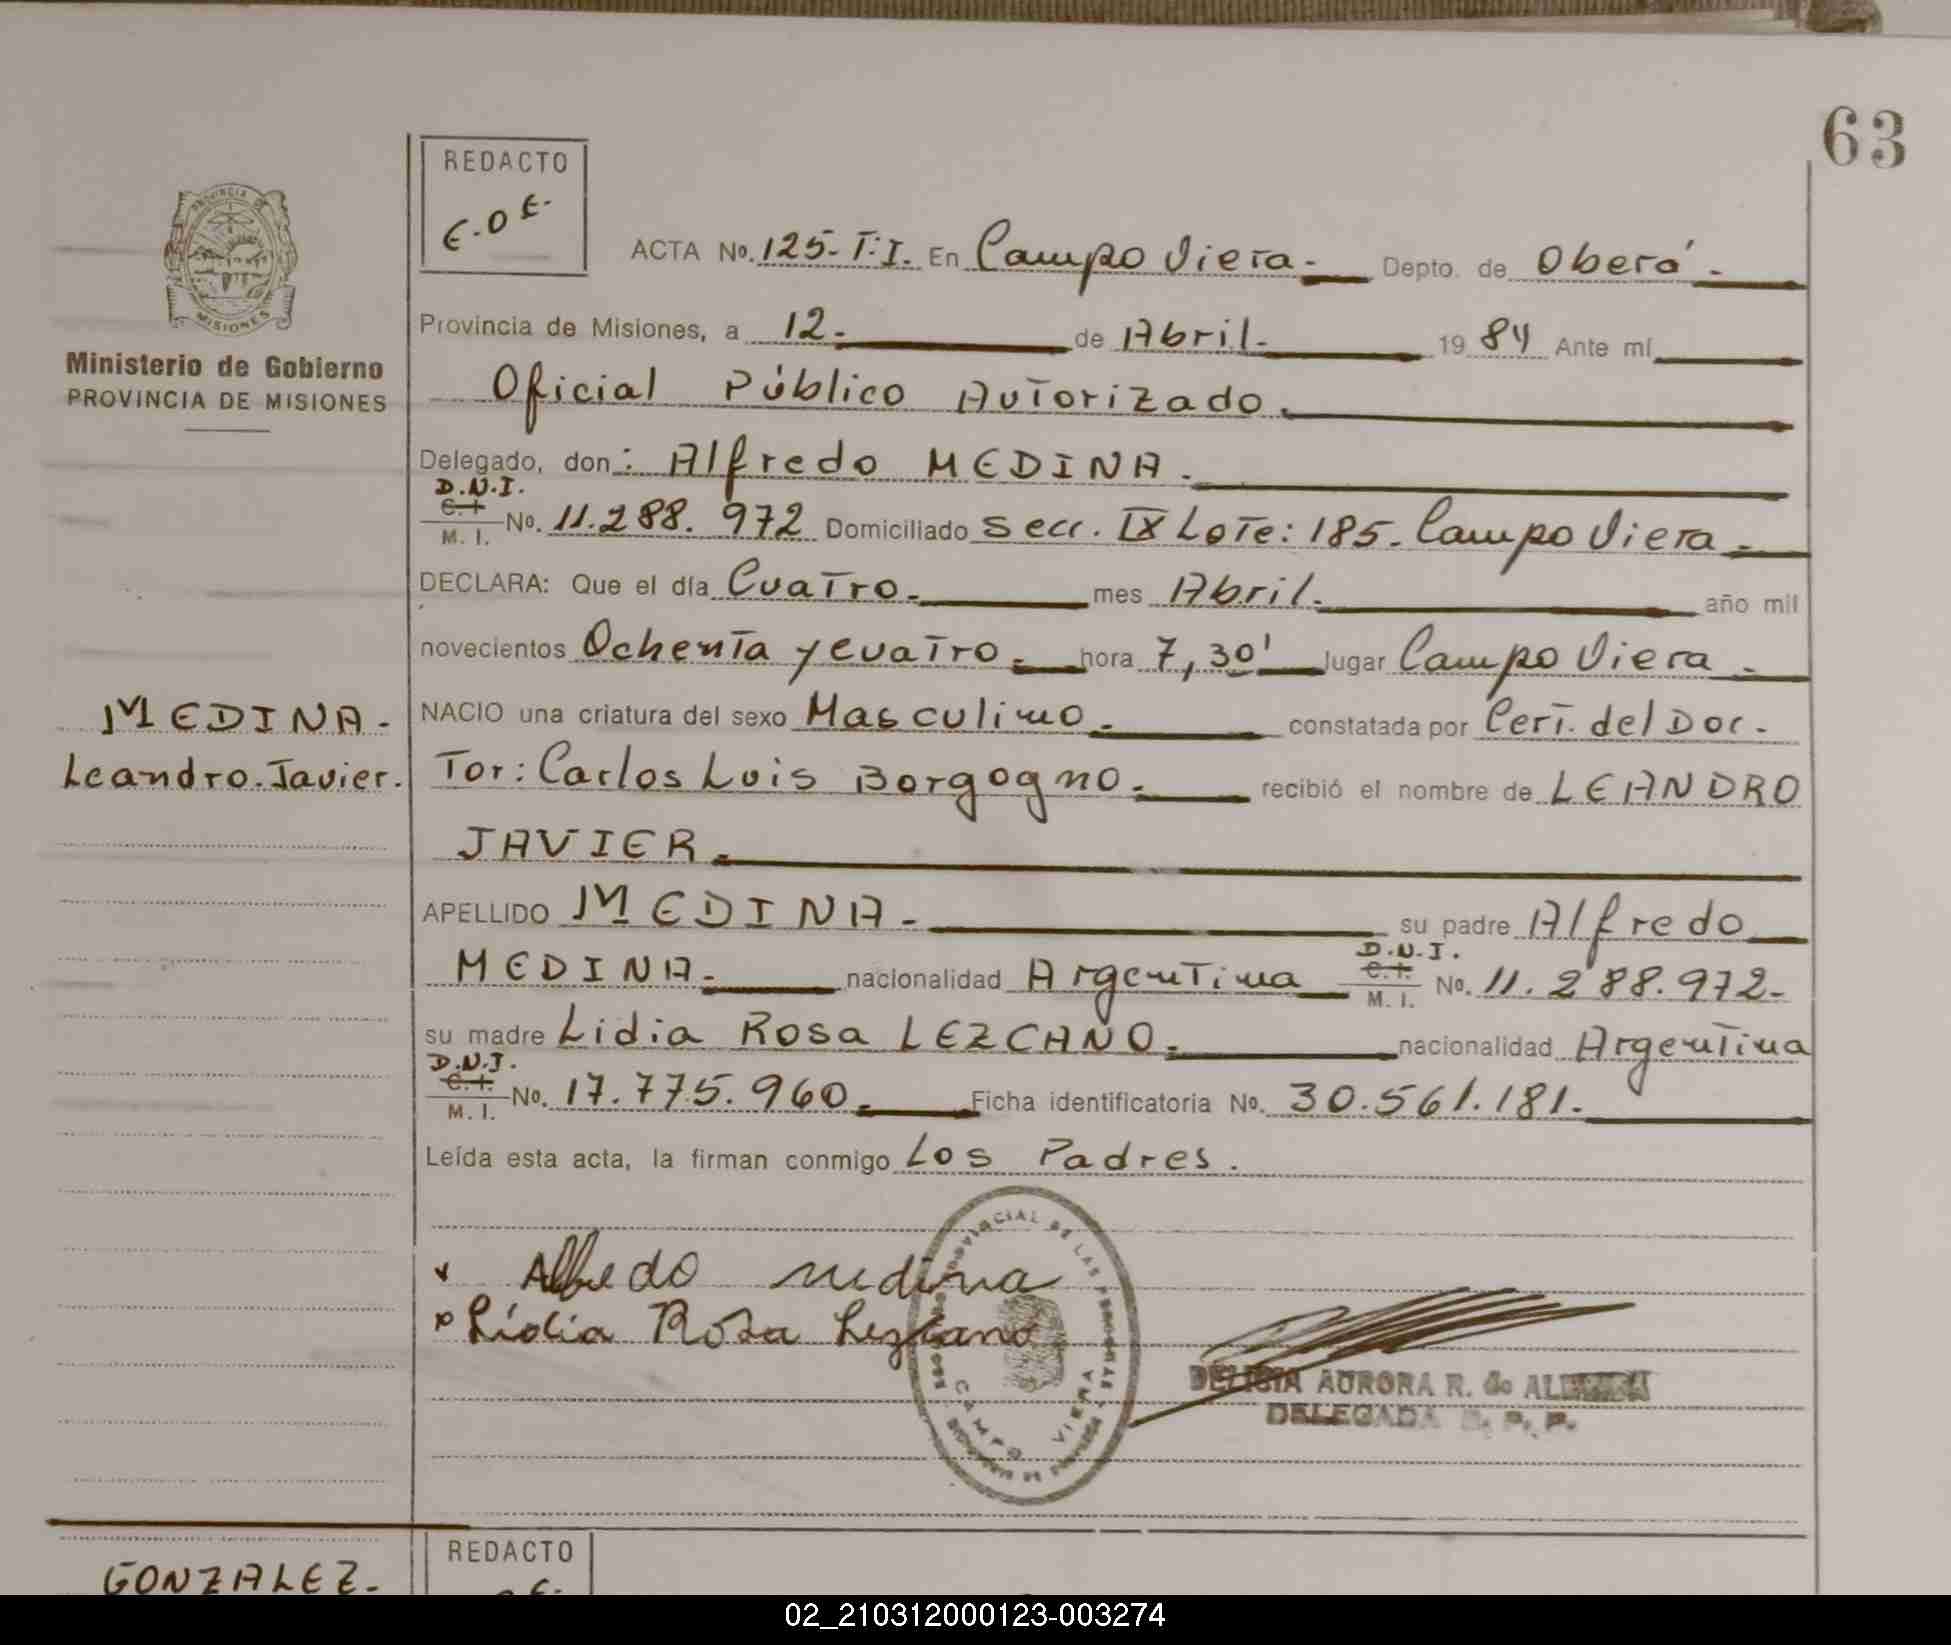 63
REDACTO
E.O.E.
PROVINCIA DE
MISIONES
Ministerio de Gobierno
PROVINCIA DE MISIONES
ACTA No. 125-T:I. En Campo Viera.- Depto. de Oberá.
Provincia de Misiones, a 12. de Abril. 1984 Ante mí
Oficial Público Autorizado.
Delegado, don: Alfredo MEDINA.
D.N.I.
C.I. M. I. No. 11.288.972 Domiciliado Secc. IX Lote: 185. Campo Viera.
DECLARA: Que el día Cuatro. mes Abril. año mil
novecientos Ochenta y cuatro. hora 7,30' lugar Campo Viera.
MEDINA.
Leandro.Javier.
NACIO una criatura del sexo Masculino. constatada por Cert. del Doc-
Tor: Carlos Luis Borgogno. recibió el nombre de LEANDRO
JAVIER.
APELLIDO MEDINA. su padre Alfredo
MEDINA. nacionalidad Argentina D.N.I. C.I. M. I. No. 11.288.972.
su madre Lidia Rosa LEZCANO. nacionalidad Argentina
D.N.I.
C.I. M. I. No. 17.775.960. Ficha identificatoria No. 30.561.181.
Leída esta acta, la firman conmigo Los Padres.
Alfredo medina
Lidia Rosa Lezcano
PROVINCIAL DE LAS PERSONAS
CAMPO VIERA
DELICIA AURORA R. de
DELEGADA R. P. P.
GONZALEZ.
REDACTO
02_210312000123-003274